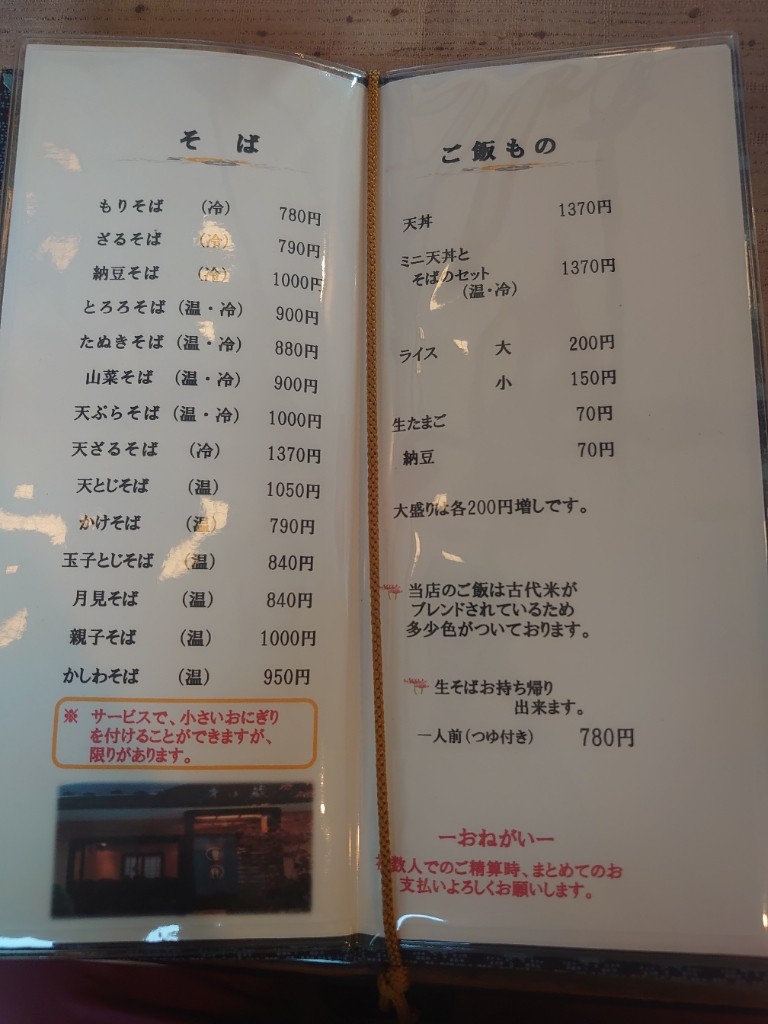 そ ば
もりそば （冷） 780円
ざるそば （冷） 790円
納豆そば （冷） 1000円
とろろそば （温・冷） 900円
たぬきそば （温・冷） 880円
山菜そば （温・冷） 900円
天ぷらそば （温・冷） 1000円
天ざるそば （冷） 1370円
天とじそば （温） 1050円
かけそば （温） 790円
玉子とじそば （温） 840円
月見そば （温） 840円
親子そば （温） 1000円
かしわそば （温） 950円
※ サービスで、小さいおにぎり
を付けることができますが、
限りがあります。
ご飯もの
天丼 1370円
ミニ天丼と
そばのセット 1370円
（温・冷）
ライス 大 200円
小 150円
生たまご 70円
納豆 70円
大盛りは各200円増しです。
当店のご飯は古代米が
ブレンドされているため
多少色がついております。
生そばお持ち帰り
出来ます。
一人前（つゆ付き） 780円
ーおねがいー
数人でのご精算時、まとめてのお
支払いよろしくお願いします。